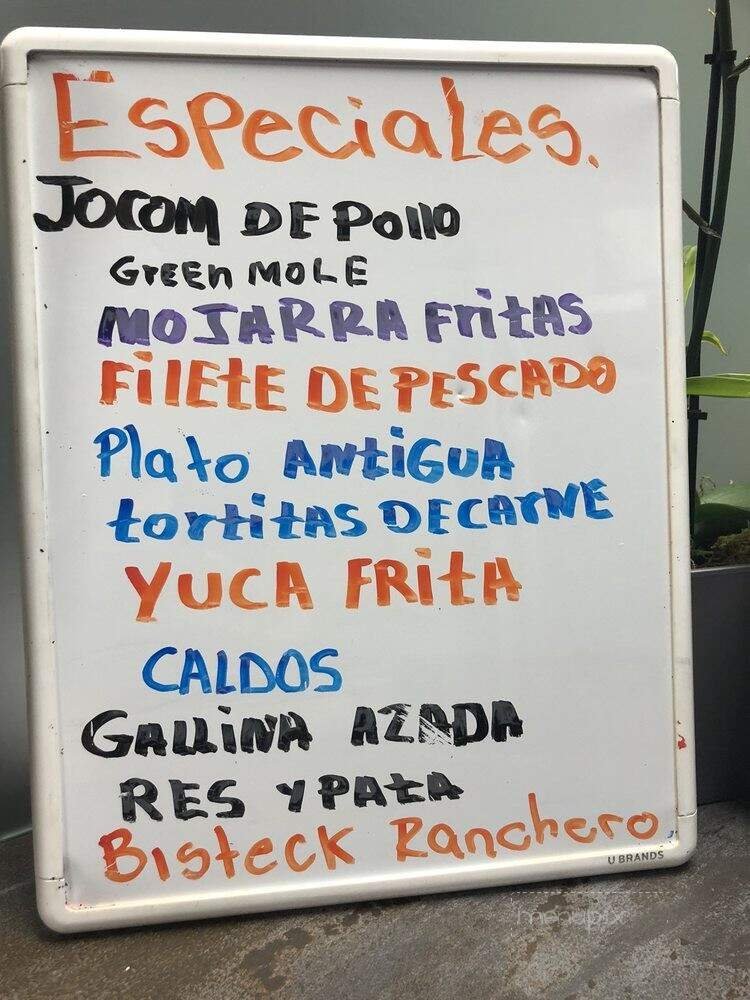 Especiales.
JOCOM DE POllO
GrEEn MOLE
MOJARRA FritAS
FilEtE DE PESCADO
Plato ANtiGUA
tortitAS DE CArNE
YUCA FRitA
CALDOS
GALLINA AZADA
RES Y PAtA
Bisteck Ranchero
U BRANDS
menupix